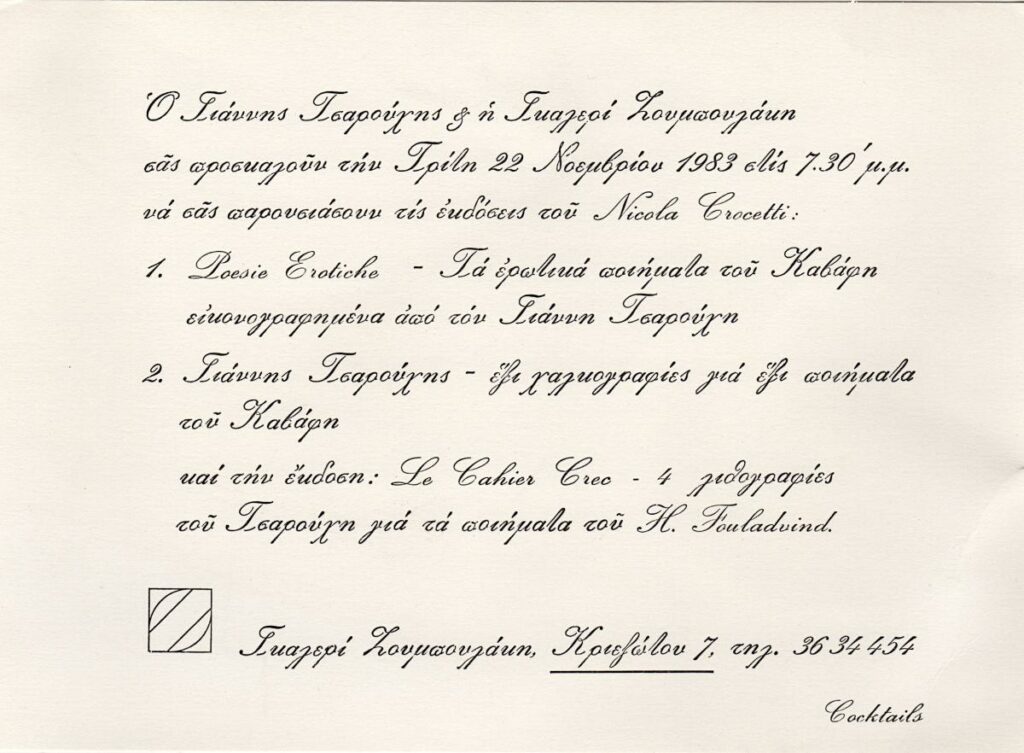 Ὁ Γιάννης Τσαρούχης & ἡ Γκαλερί Ζουμπουλάκη
σᾶς προσκαλοῦν τήν Τρίτη 22 Νοεμβρίου 1983 στίς 7.30΄ μ.μ.
νά σᾶς παρουσιάσουν τίς ἐκδόσεις τοῦ Nicola Crocetti:
1. Poesie Erotiche - Τά ἐρωτικά ποιήματα τοῦ Καβάφη
εἰκονογραφημένα ἀπό τόν Γιάννη Τσαρούχη
2. Γιάννης Τσαρούχης - ἕξι χαλκογραφίες γιά ἕξι ποιήματα
τοῦ Καβάφη
καί τήν ἔκδοση: Le Cahier Crec - 4 λιθογραφίες
τοῦ Τσαρούχη γιά τά ποιήματα τοῦ H. Fouladvind.
Γκαλερί Ζουμπουλάκη, Κριεζώτου 7, τηλ. 36 34 454
Cocktails